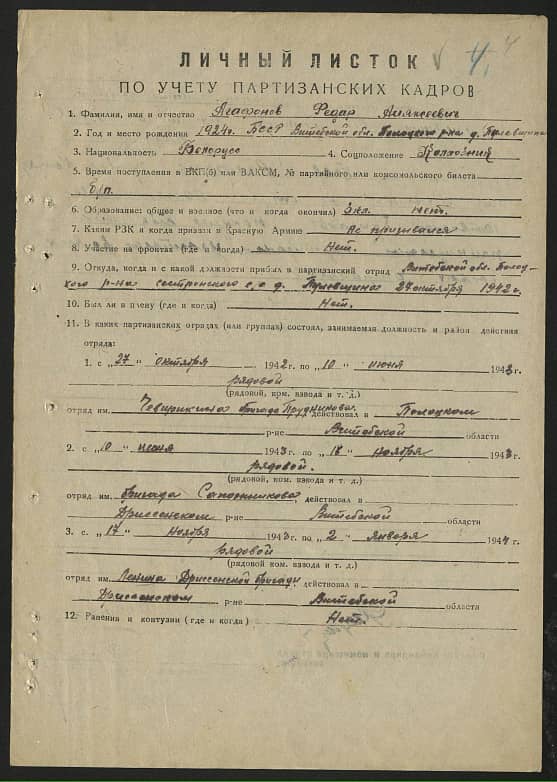 4 4
ЛИЧНЫЙ ЛИСТОК
ПО УЧЕТУ ПАРТИЗАНСКИХ КАДРОВ
1. Фамилия, имя и отчество Агафонов Федар Аляксеевич
2. Год и место рождения 1924г. БССР Витебской обл. Полоцкого р-на д.
3. Национальность Белорусс 4. Соцположение Колхозник
5. Время поступления в ВКП(б) или ВЛКСМ, № партийного или комсомольского билета
б/п.
6. Образование: общее и военное (что и когда окончил) 3 кл. нет.
7. Каким РВК и когда призван в Красную Армию не призывался
8. Участие на фронтах (где и когда) Нет.
9. Откуда, когда и с какой должности прибыл в партизанский отряд Витебской обл. Полоц-
кого р-на с/с д. 27 октября 1942 г.
10. Был ли в плену (где и когда) Нет.
11. В каких партизанских отрядах (или группах) состоял, занимаемая должность и район действия
отряда:
1. с „27 “ октября 1942 г. по „10 “ июня 1943 г.
рядовой
(рядовой, ком. взвода и т. д.)
отряд им. бригада Прудникова действовал в Полоцком
р-не Витебской области
2. с „10 “ июня 1943 г. по „18 “ ноября 1943 г.
рядовой.
(рядовой, ком. взвода и т. д.)
отряд им. бригада действовал в
Дриссенском р-не Витебской области
3. с „17 “ ноября 1943 г. по „2 “ января 1944 г.
рядовой
(рядовой ком. взвода и т. д.)
отряд им. Ленина Дриссенской бригады действовал в
Дриссенском р-не Витебской области
12. Ранения и контузии (где и когда) Нет.